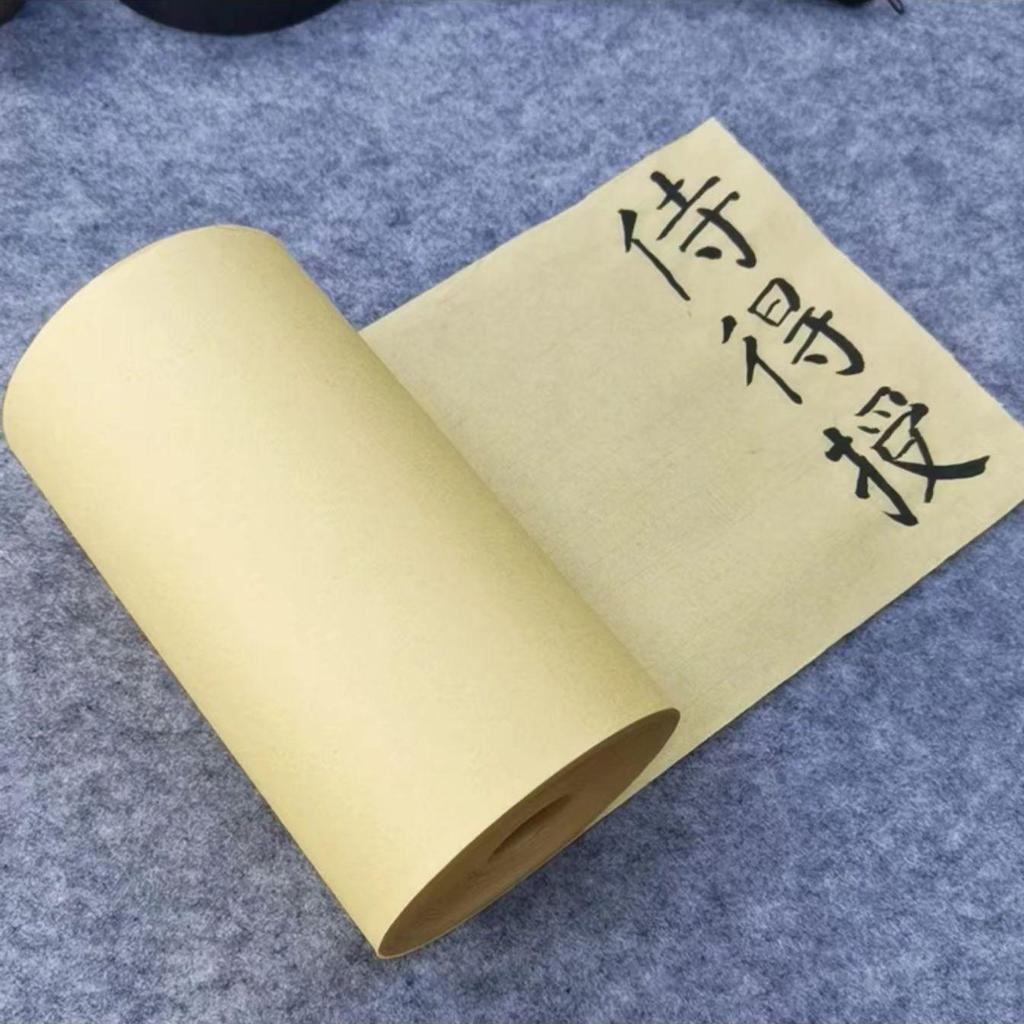 侍得授